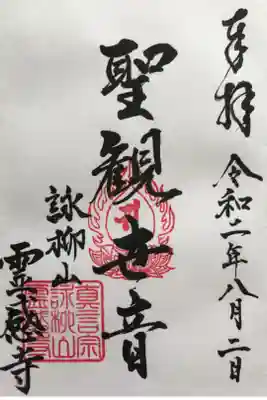 奉拝 令和二年八月二日
聖観世音
詠柳山
霊感寺
真言宗
詠柳山